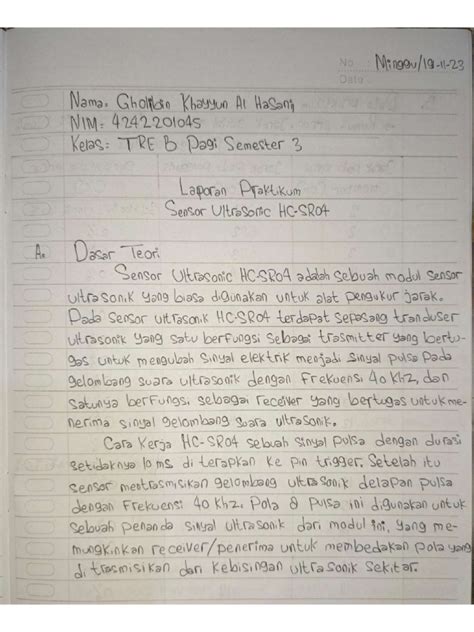 No : Minggu/19-11-23
Date :
Nama: Gholidin Khayyun Al Hasani
NIM: 4242201045
Kelas: TRE B Pagi Semester 3
Laporan Praktikum
Sensor Ultrasonic HC-SR04
A. Dasar Teori
Sensor Ultrasonic HC-SR04 adalah sebuah modul sensor
ultrasonik yang biasa digunakan untuk alat pengukur jarak.
Pada sensor ultrasonik HC-SR04 terdapat sepasang tranduser
ultrasonik yang satu berfungsi sebagai trasmitter yang bertu-
gas untuk mengubah sinyal elektrik menjadi sinyal pulsa pada
gelombang suara ultrasonik dengan Frekuensi 40 Khz, dan
satunya berfungsi sebagai receiver yang bertugas untuk me-
nerima sinyal gelombang suara ultrasonik.
Cara Kerja HC-SR04 sebuah sinyal pulsa dengan durasi
setidaknya 10 ms diterapkan ke pin trigger. Setelah itu
sensor mentrasmisikan gelombang ultrasonik delapan pulsa
dengan Frekuensi 40 Khz. Pola 8 pulsa ini digunakan untuk
sebuah penanda sinyal ultrasonik dari modul ini, yang me-
mungkinkan receiver/penerima untuk membedakan pola yang
ditrasmisikan dari kebisingan ultrasonik sekitar.